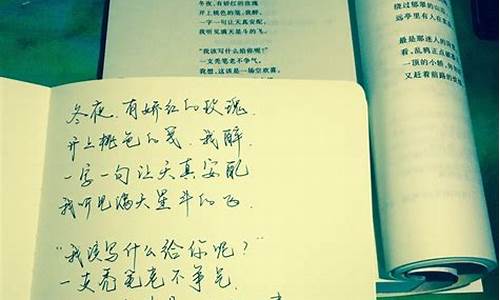 冬夜，有娇红的玫瑰
开上桃色的笺，我醉，
一字一句让天真安配，
我听见满天星斗的飞。
“我该写什么给你呢？”
一支秃笔老不争气，
我想，这该是一场空欢喜。
绕过郁翠的山
远亭里有人在
最是那迷人的
看，乱鸦正点破
一顶的小轿，
又赶着前路的
冬夜,有娇红的玫瑰.
开上桃色的笺.我醉.
一字一句让天真安配
我听见满天星斗的飞.
“我该写什么给你呢?”
一支秃笔老不争气.